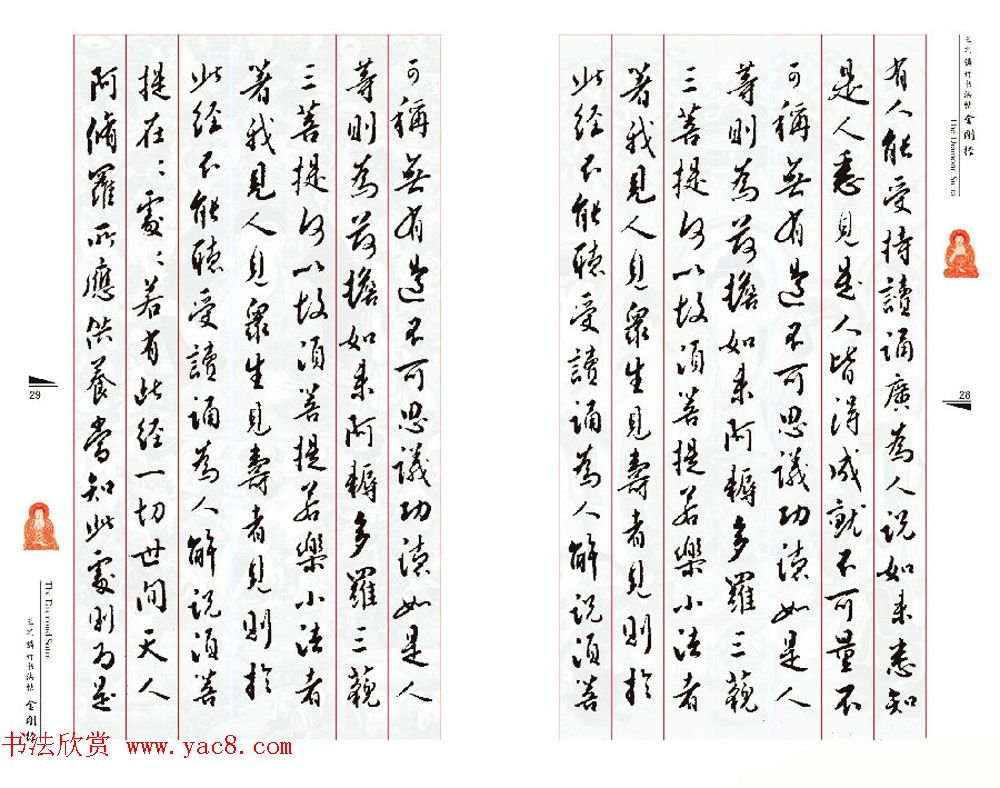 行书法帖 金刚经
The Diamond Sutra
28
有人能受持讀誦廣為人説如来悉知
是人悉見是人皆得成就不可量不
可稱無有邊不可思議功德如是人
等則為荷擔如来阿耨多羅三藐
三菩提何以故須菩提若樂小法者
著我見人見眾生見壽者見則於
此經不能聽受讀誦為人解説須菩
可稱無有邊不可思議功德如是人
等則為荷擔如来阿耨多羅三藐
三菩提何以故須菩提若樂小法者
著我見人見眾生見壽者見則於
此經不能聽受讀誦為人解説須菩
提在：處：若有此經一切世間天人
阿脩羅所應供養當知此處則為是
29
The Diamond Sutra
行书法帖 金刚经
书法欣赏 www.yac8.com